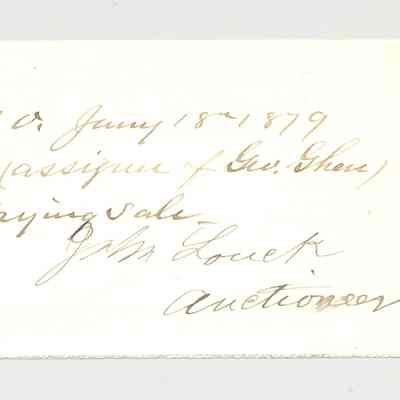 O. Jany 18th 1879
(assignee of Geo. Ghen)
crying sale
John Louck
Auctioneer